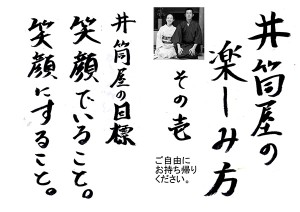 井筒屋の
楽しみ方
その壱
ご自由に
お持ち帰り
ください。
井筒屋の目標
笑顔でいること。
笑顔にすること。